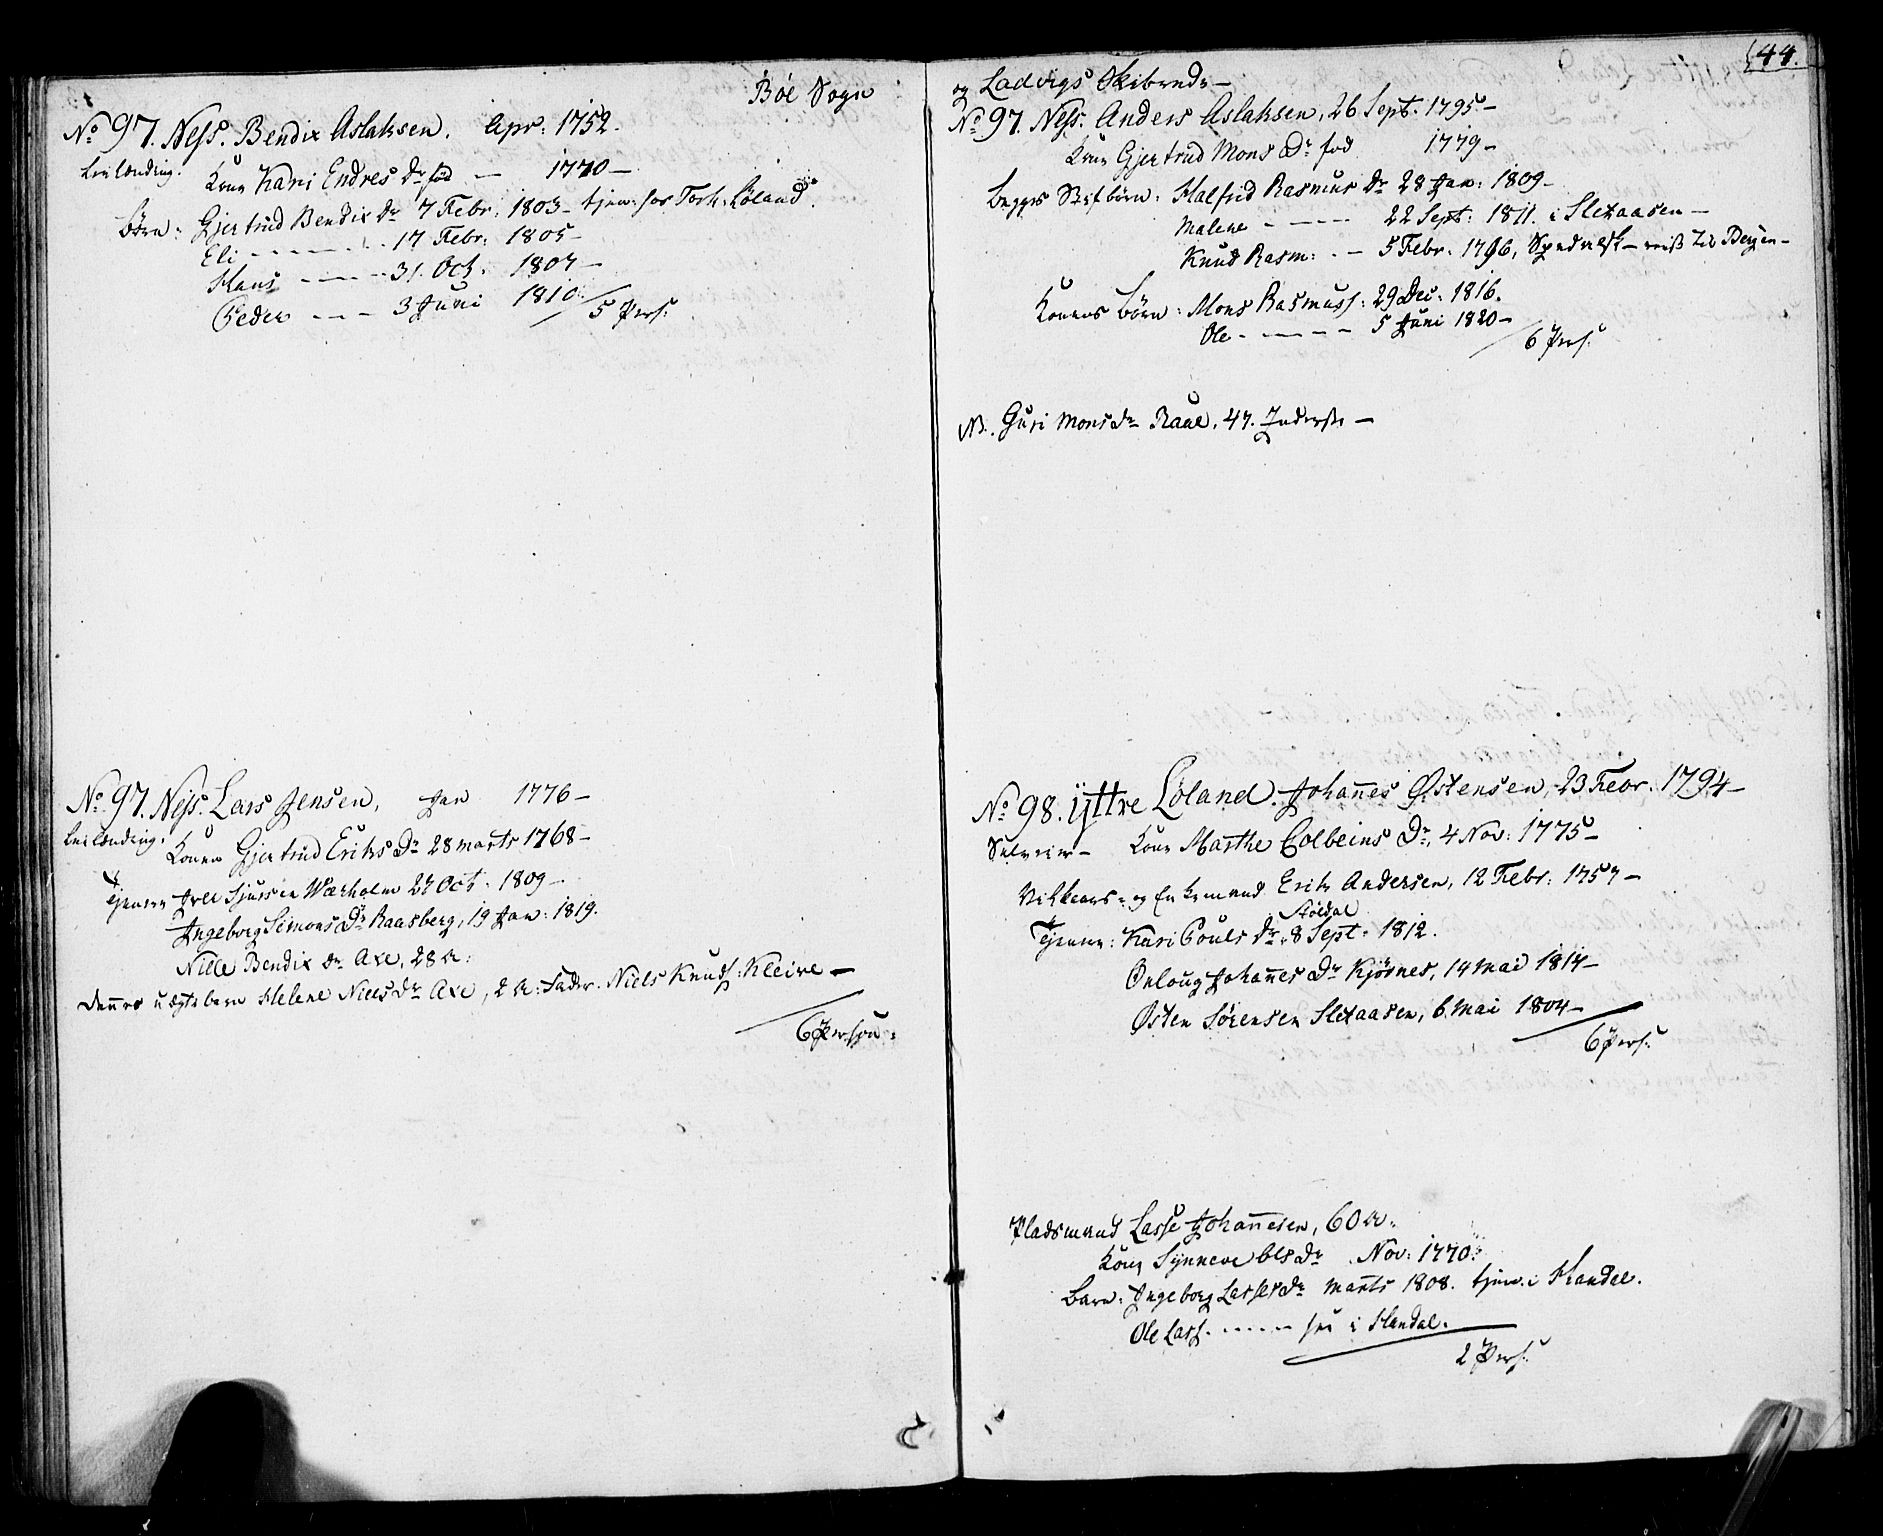 Böe Sogn
No 97. Ness. Bendix Aslaksen. Apr: 1752.
Leilænding. Kone Kari Endres Dr fød — 1770 —
Börn: Gjertrud Bendix Dr 7 Febr: 1803 - tjen: hos Tork: Löland.
Eli - - - - - 17 Febr: 1805 -
Hans - - - - - 31. Oct. 1807 -
Peder - - - 3 Juni 1810.
5 Pers:
No 97. Ness. Lars Jensen, Jan 1776 -
Leilænding. Konen Gjertrud Eriks Dr 28 marts 1768 -
Tjenere Iver Sjursen Wærholm 27 Oct. 1809 -
Ingeborg Simons Dr Raasberg, 19 Jan: 1819.
Nille Bendix Dr Axe, 28 A:
Dennes uægte barn Helene Niels Dr Axe, 2 A: Fader. Niels Knuds: Kleive —
6 Person:
44.
og Ladvigs Skibrede -
No 97. Ness. Anders Aslaksen, 26 Sept. 1795 -
Kone Gjertrud Mons Dr fød 1779 -
Begges Stifbörn: Halfrid Rasmus Dr 28 Jan: 1809 -
Malene - - - - 22 Sept: 1811. i Sletaasen -
Knud Rasm: - - 5 Febr. 1796, - reist til Bergen -
Konens börn: Mons Rasmuss: 29 Dec: 1816.
Ole - - - - - 5 Juni 1820 -
6 Pers:
NB. Guri Mons Dr Raae, 47. Inderste —
No 98. Yttre Löland. Johañes Østensen, 23 Febr. 1794 -
Selveier - Kone Marthe Colbeins Dr, 4 Nov: 1775 -
Vilkaars- og Enkemand Erik Andersen, 12 Febr: 1757 -
Stöldal
Tjenere: Kari Pouls Dr, 8 Sept. 1812.
Önloug Johañes Dr Kjörnes, 14 Mai 1814 -
Østen Sörensen Sletaasen, 6. Mai 1804 -
6 Pers:
Pladsmand Lasse Johañesen, 60 A.
Kone Synneve Ols Dr Nov: 1770.
Barn: Ingeborg Lasses Dr Marts 1808. tjen: i Handal.
Ole Lass. - - - - - i Handal.
2 Pers: